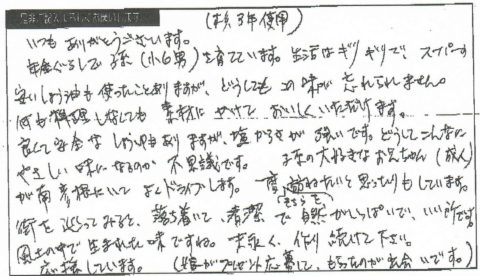 (約3年使用)
いつもありがとうございます。
年金ぐらしで孫(小6男)を育てています。生活はギリギリで、スーパーの
安いしょう油も使ったことありますが、どうしてもこの味が忘れられません。
何も料理しなくても素材にかけておいしくいただけます。
良くて安全なしょう油もありますが、塩からさが強いです。どうしてこんなに
やさしい味になるのか不思議です。孫の大好きなお兄ちゃん(成人)
が南彦根にいてよくドライブします。一度そちらを訪ねたいと思ったりもしています。
街を巡ってみると、落ち着いて、清潔で自然がいっぱいで、いい所です。
風土の中で生まれた味ですね。末永く、作り続けて下さい。
応援しています。(娘がプレゼント応募して、もらったのが出会いです)